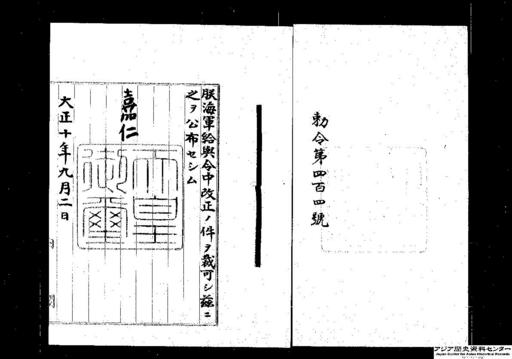 勅令第四百四號
朕海軍給與令中改正ノ件ヲ裁可シ茲ニ
之ヲ公布セシム
嘉仁
天皇
御璽
大正十年九月二日
アジア歴史資料センター
Japan Center for Asian Historical Records